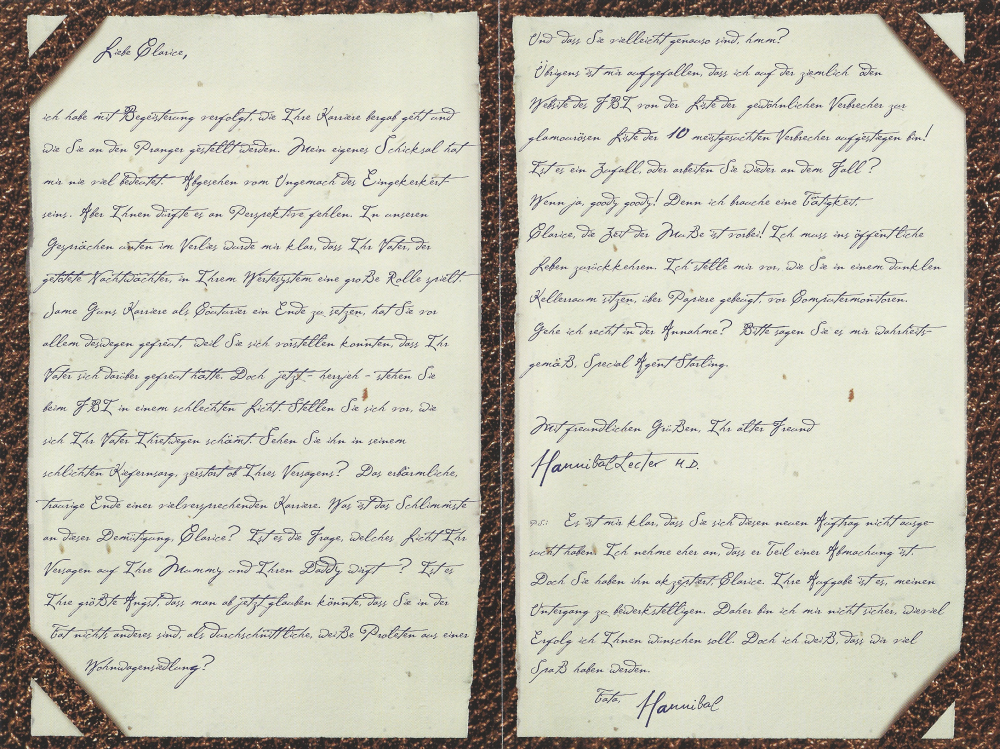 Liebe Clarice,
ich habe mit Begeisterung verfolgt, wie Ihre Karriere bergab geht und
wie Sie an den Pranger gestellt werden. Mein eigenes Schicksal hat
mir nie viel bedeutet. Abgesehen vom Ungemach des Eingekerkert-
seins. Aber Ihnen dürfte es an Perspektive fehlen. In unseren
Gesprächen unten im Verlies wurde mir klar, dass Ihr Vater, der
getötete Nachtwächter, in Ihrem Wertesystem eine große Rolle spielt.
Jame Gums Karriere als Couturier ein Ende zu setzen, hat Sie vor
allem deswegen gefreut, weil Sie sich vorstellen konnten, dass Ihr
Vater sich darüber gefreut hätte. Doch jetzt - herrjeh - stehen Sie
beim FBI in einem schlechten Licht. Stellen Sie sich vor, wie
sich Ihr Vater Ihretwegen schämt. Sehen Sie ihn in seinem
schlichten Kiefernsarg, zerstört ob Ihres Versagens? Das erbärmliche,
traurige Ende einer vielversprechenden Karriere. Was ist das Schlimmste
an dieser Demütigung, Clarice? Ist es die Frage, welches Licht Ihr
Versagen auf Ihre Mummy und Ihren Daddy wirft - ? Ist es
Ihre größte Angst, dass man ab jetzt glauben könnte, dass Sie in der
Tat nichts anderes sind, als durchschnittliche, weiße Proleten aus einer
Wohnwagensiedlung?
Und dass Sie vielleicht genauso sind, hmm?
Übrigens ist mir aufgefallen, dass ich auf der ziemlich öden
Website des FBI von der Liste der gewöhnlichen Verbrecher zur
glamourösen Liste der 10 meistgesuchten Verbrecher aufgestiegen bin!
Ist es ein Zufall, oder arbeiten Sie wieder an dem Fall?
Wenn ja, goody goody! Denn ich brauche eine Tätigkeit.
Clarice, die Zeit der Muße ist vorbei! Ich muss ins öffentliche
Leben zurückkehren. Ich stelle mir vor, wie Sie in einem dunklen
Kellerraum sitzen, über Papiere gebeugt, vor Computermonitoren.
Gehe ich recht in der Annahme? Bitte sagen Sie es mir wahrheits-
gemäß, Special Agent Starling.
Mit freundlichen Grüßen, Ihr alter Freund
Hannibal Lecter M.D.
P.S.: Es ist mir klar, dass Sie sich diesen neuen Auftrag nicht ausge-
sucht haben. Ich nehme eher an, dass er Teil einer Abmachung ist.
Doch Sie haben ihn akzeptiert, Clarice. Ihre Aufgabe ist es, meinen
Untergang zu bewerkstelligen. Daher bin ich mir nicht sicher, wieviel
Erfolg ich Ihnen wünschen soll. Doch ich weiß, dass wir viel
Spaß haben werden.
Tata, Hannibal